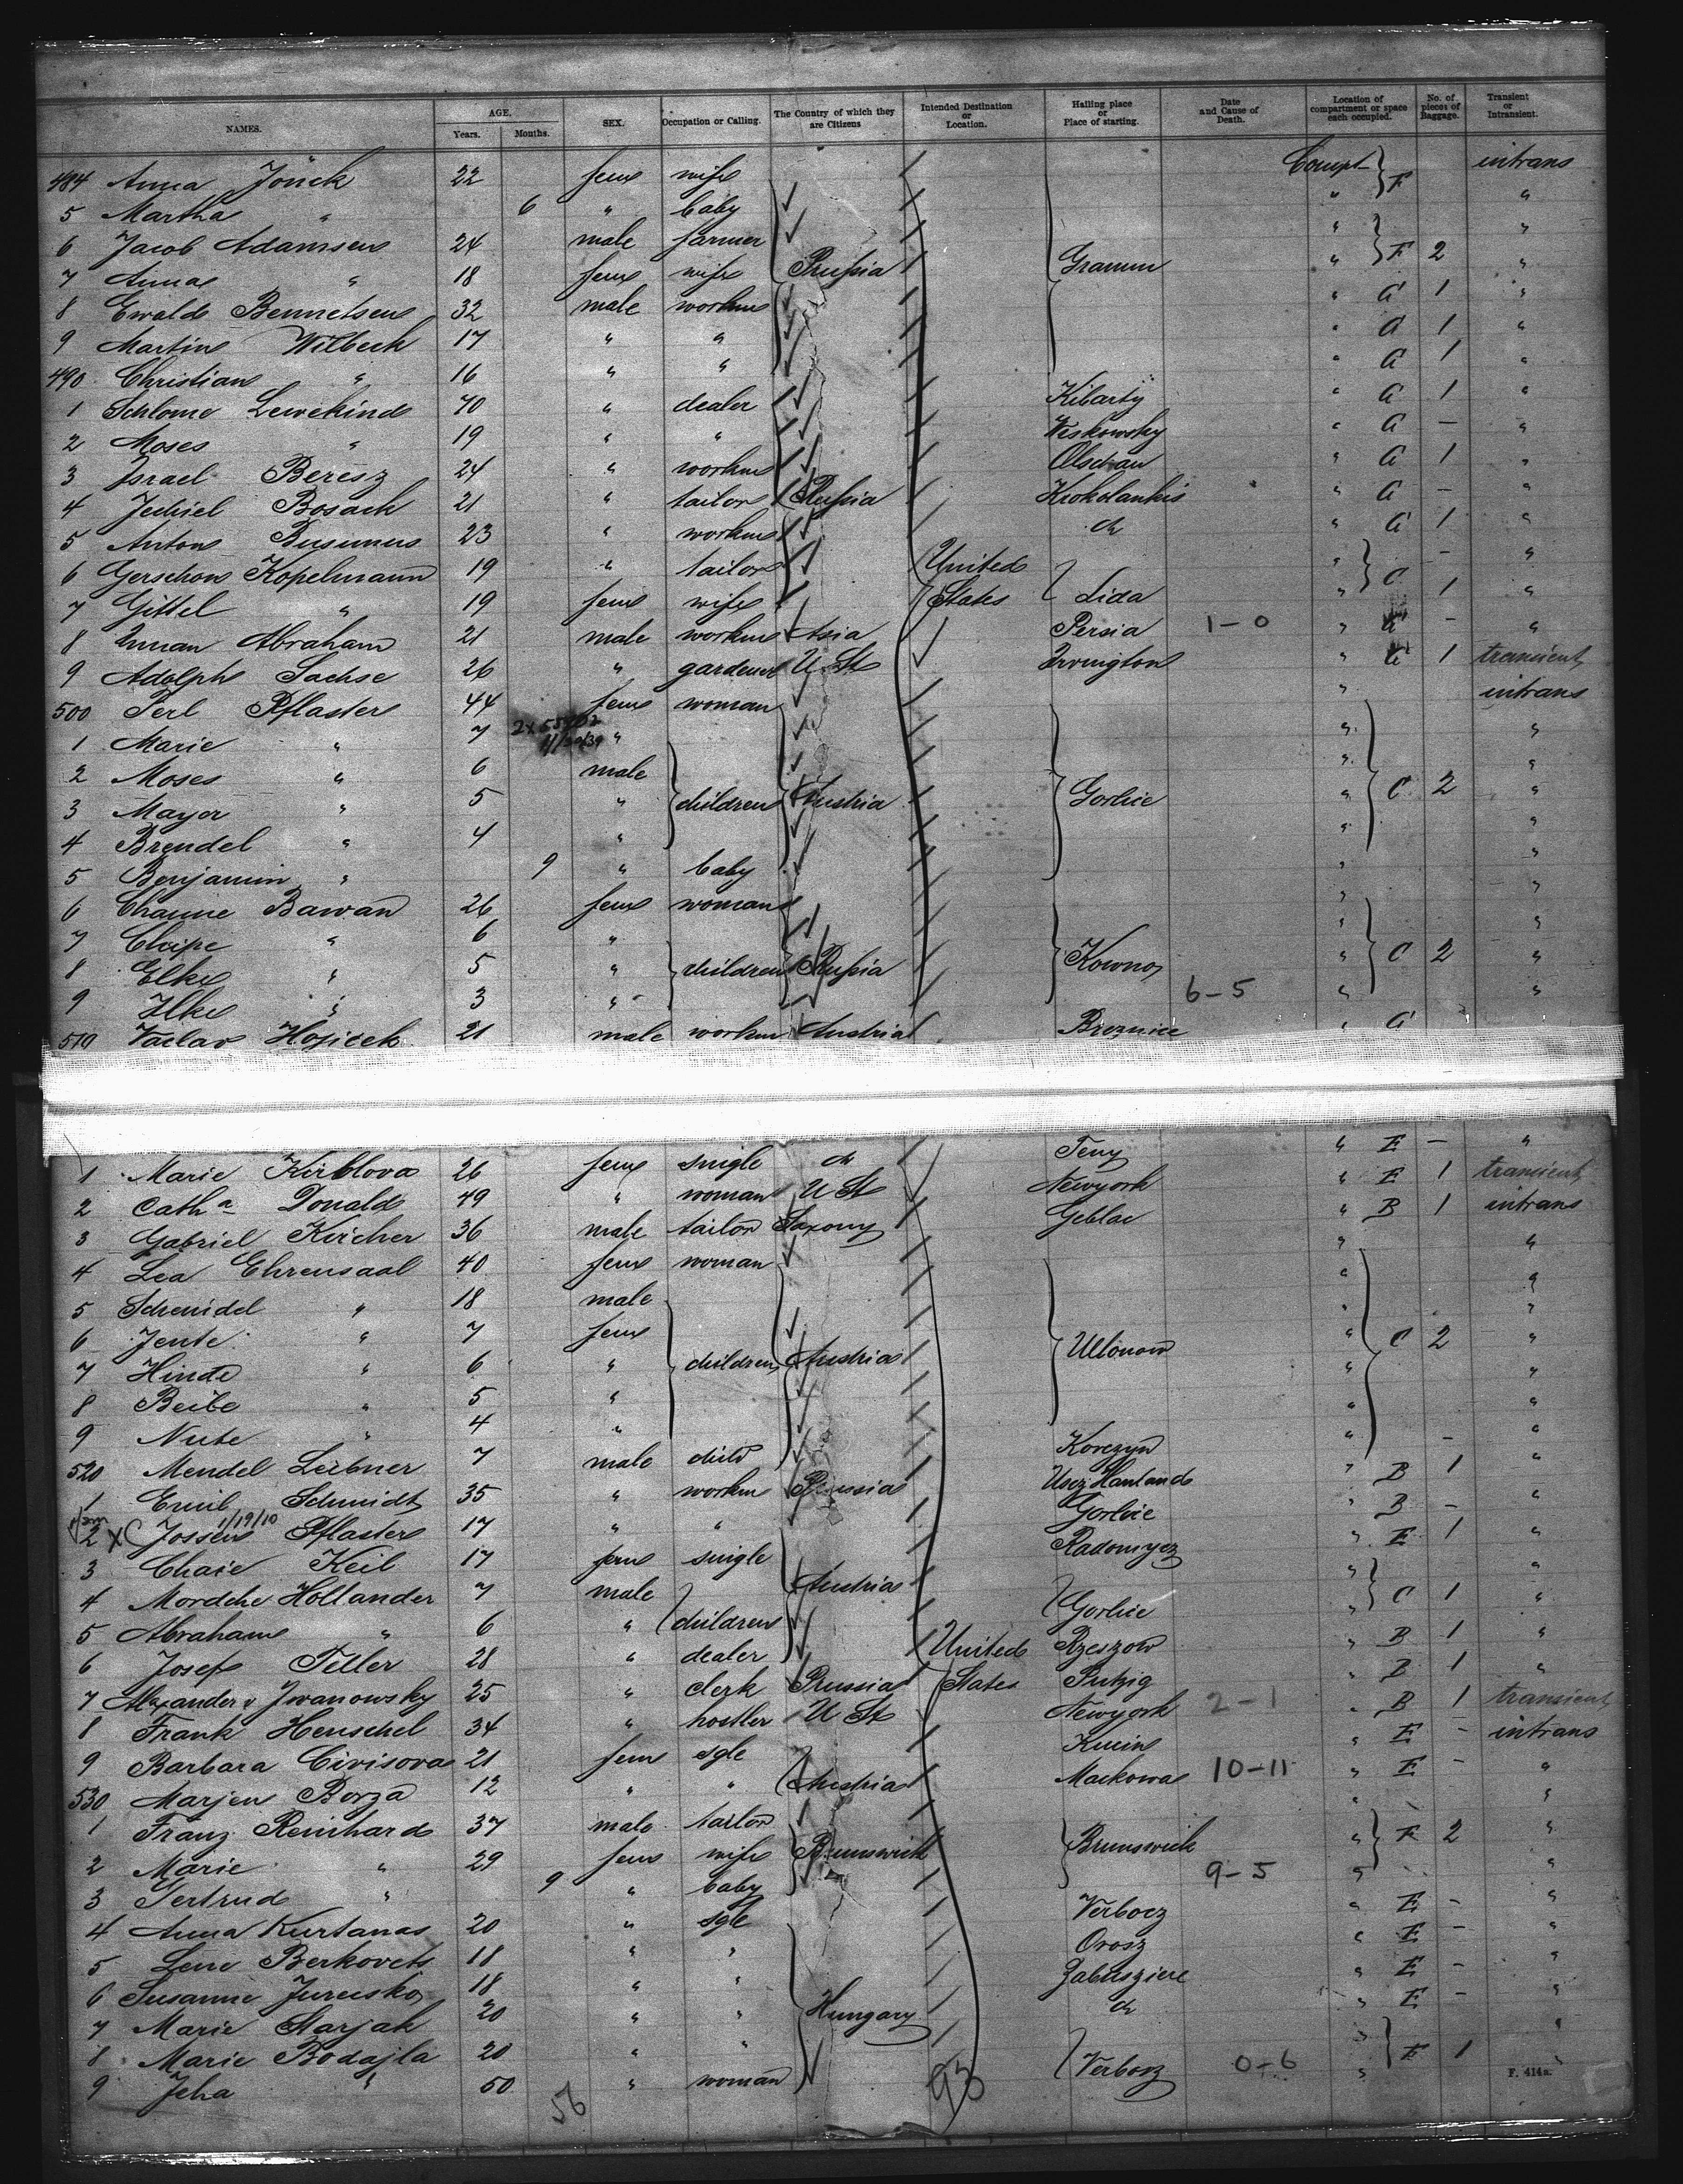 NAMES. AGE. Years. Months. SEX. Occupation or Calling. The Country of which they are Citizens Intended Destination or Location. Hailing place or Place of starting. Date and Cause of Death. Location of compartment or space each occupied. No. of pieces of Baggage. Transient or Intransient.
484 Anna Jönck 22 fem wife Compt F intrans
5 Martha " 6 " baby " "
6 Jacob Adamsen 24 male farmer " "
7 Anna " 18 fem wife Prussia Gramm " F 2 "
8 Ewald Bennetsen 32 male workm " G 1 "
9 Martin Wilbeck 17 " " " G 1 "
490 Christian " 16 " " " G 1 "
1 Schlome Lewekind 70 " dealer Kibarty " G 1 "
2 Moses " 19 " " Weskowsky " G - "
3 Israel Beresz 24 " workm Olschau " G 1 "
4 Jechiel Bosack 21 " tailor Russia Krokolankis " G - "
5 Anton Busumus 23 " workm do " G 1 "
6 Gerschon Kopelmann 19 " tailor United " C - "
7 Gittel " 19 fem wife States Lida " 1 "
8 Abraham 21 male workm Asia Persia 1-0 " G - "
9 Adolph Sachse 26 " gardener U St Irvington " G 1 transient
500 Perl Pflaster 44 fem woman " intrans
1 Marie " 7 " " "
2 Moses " 6 male " "
3 Mayer " 5 " children Austria Gorlice " C 2 "
4 Brendel " 4 " " "
5 Benjamin " 9 " baby " "
6 Channe Bawan 26 fem woman " "
7 " 6 " " "
8 Elke " 5 " children Russia Kowno " C 2 "
9 Ilke " 3 " 6-5 " "
510 Vaclav Hojicek 21 male workm Austria Breznice " G
1 Marie Kirblova 26 fem single do Teny " E - "
2 Cath a Donald 49 " woman U St Newyork " E 1 transient
3 Gabriel Kircher 36 male tailor Saxony Geblac " B 1 intrans
4 Lea Ehrensaal 40 fem woman " "
5 Schemidel " 18 male " "
6 Jente " 7 fem " "
7 Hinde " 6 " children Austria Ullonow " C 2 "
8 Beile " 5 " " "
9 Nute " 4 " " "
520 Mendel Leibner 7 male child Korczyn " - "
1 Emil Schmidt 35 " workm Russia Usez Hauland " B 1 "
2 Jossen Pflaster 1/19/10 17 " " Gorlice " B - "
3 Chaie Keil 17 fem single Radomycz " E 1 "
4 Mordche Hollander 7 male Austria " "
5 Abraham " 6 " children Gorlice " C 1 "
6 Josef Teller 28 " dealer United Rzeszow " B 1 "
7 Alexander v Iwanowsky 25 " clerk Prussia States Putzig " B 1 "
8 Frank Henschel 34 " hostler U St Newyork 2-1 " B 1 transient
9 Barbara Civisova 21 fem sgle Kucin " E - intrans
530 Marjen Borza 12 " " Austria Mackowa 10-11 " E - "
1 Franz Reinhard 37 male tailor " "
2 Marie " 29 fem wife Brunswick Brunswick " F 2 "
3 Gertrud " 9 " baby 9-5 " "
4 Anna Kurtanas 20 " sgle Verbocz " E - "
5 Lene Berkovets 18 " " Orosz " E - "
6 Susanne Jurcisko 18 " " Zabusziece " E - "
7 Marie Starjak 20 " " Hungary do " E - "
8 Marie Bodajla 20 " " " E 1 "
9 Jeha " 50 " woman Verbocz 0-6 " "
56 93
F. 414a.